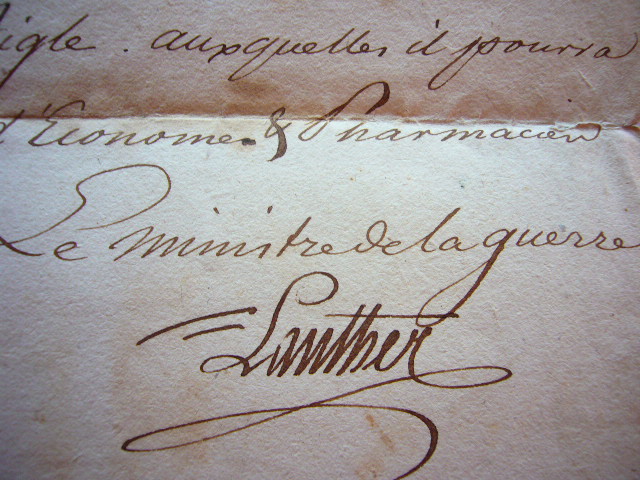 Aigle. auxquelles il pourra
d'Econome & Pharmacien
Le ministre de la guerre
Lanther